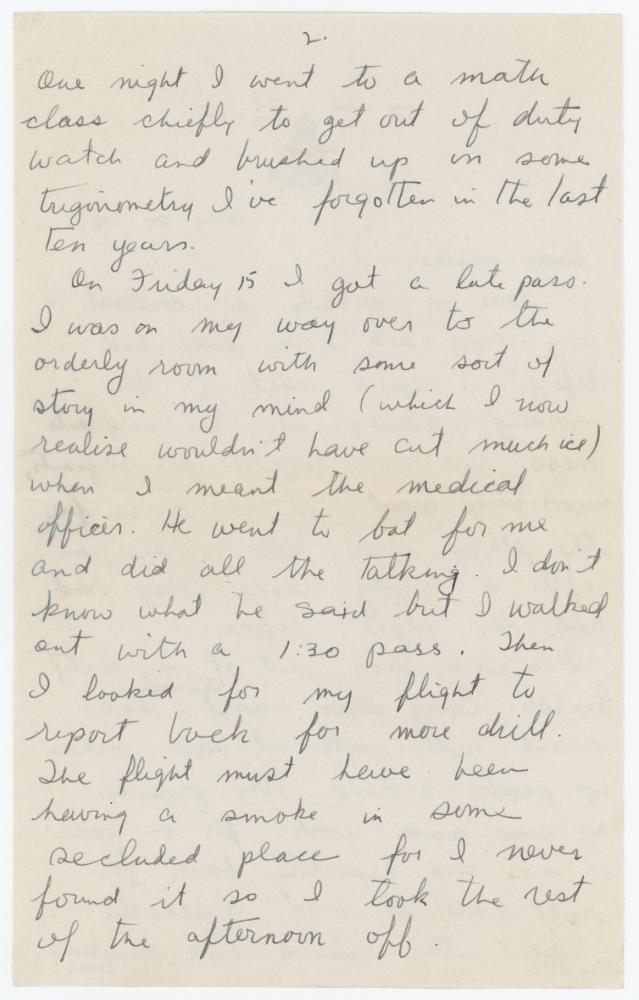 2.
One night I went to a math
class chiefly to get out of duty
watch and brushed up on some
trigonometry I've forgotten in the last
ten years.
On Friday 15 I got a late pass.
I was on my way over to the
orderly room with some sort of
story in my mind (which I now
realise wouldn't have cut much ice)
when I meant the medical
officer. He went to bat for me
and did all the talking. I don't
know what he said but I walked
out with a 1:30 pass. Then
I looked for my flight to
report back for more drill.
The flight must have been
having a smoke in some
secluded place for I never
found it so I took the rest
of the afternoon off.